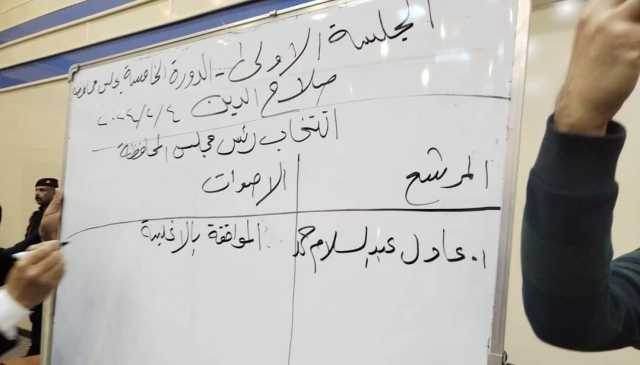 الجلسة الاولى - الدورة الخامسة مجلس محافظة
صلاح الدين ٤/٢/٢٠٢٤
انتخاب رئيس مجلس المحافظة
المرشح الاصوات
١. عادل عبد السلام حمد الموافقة بالاغلبية